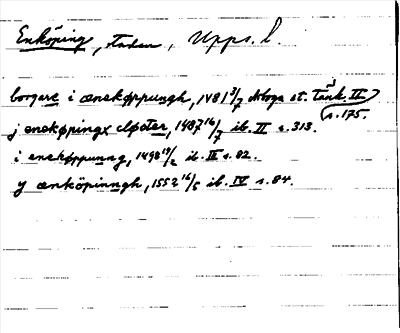 Enköping, staden, Upps. l.
borgare i ænekøppungh, 1481 3/7 Arboga st. Tänk. II s. 175.
j enekøpingx closter, 1487 16/7 ib. II s. 313.
i enekøppunng, 1490 19/2 ib. III s. 82.
y ænköpinngh, 1552 16/5 ib. IV s. 84.